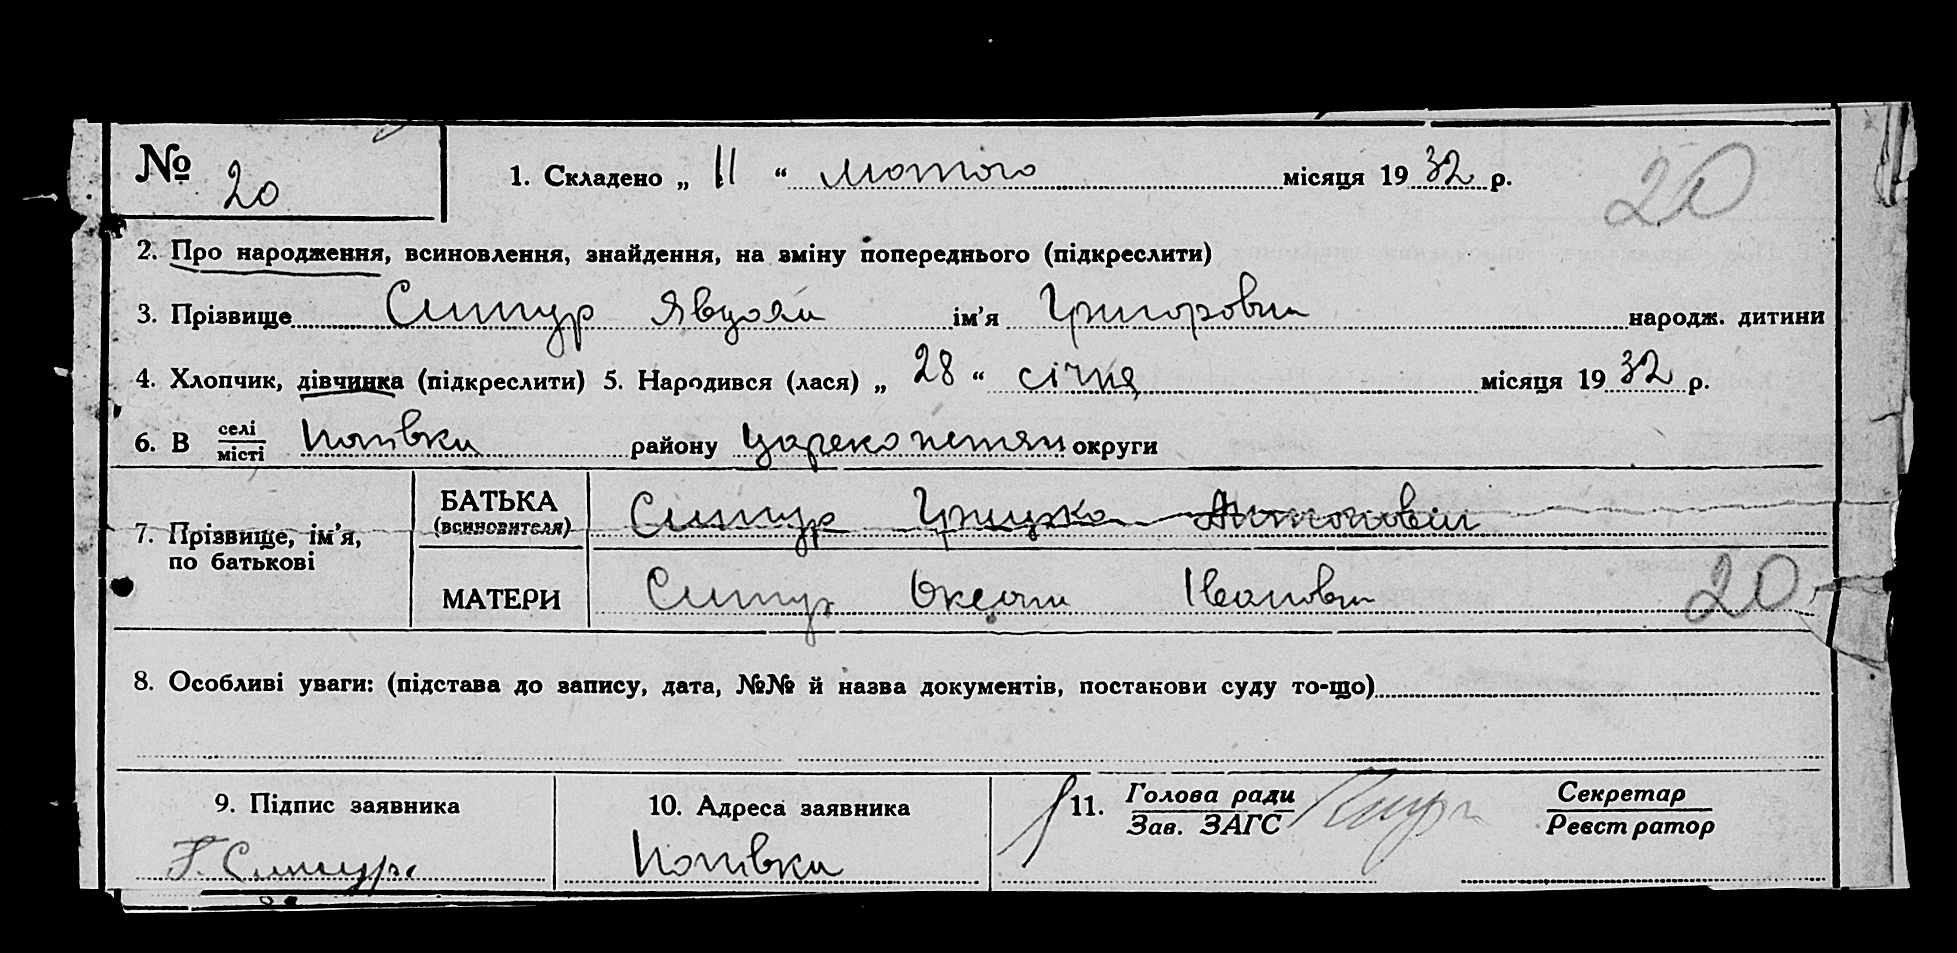 № 20
1. Складено „ 11 “ лютого місяця 1932 р.
20
2. Про народження, всиновлення, знайдення, на зміну попереднього (підкреслити)
3. Прізвище Ситур Явдоха ім’я Григоровна народж. дитини
4. Хлопчик, дівчинка (підкреслити) 5. Народився (лася) „ 28 “ січня місяця 1932 р.
6. В селі/місті Попівка району округи
7. Прізвище, ім’я, по батькові
БАТЬКА (всиновителя) Ситур Грицько Антонович
МАТЕРИ Ситур Оксана Івановна
20
8. Особливі уваги: (підстава до запису, дата, №№ й назва документів, постанови суду то-що)
9. Підпис заявника
10. Адреса заявника
11. Голова ради/Зав. ЗАГС
Секретар/Реєстратор
Г. Ситур
Попівка